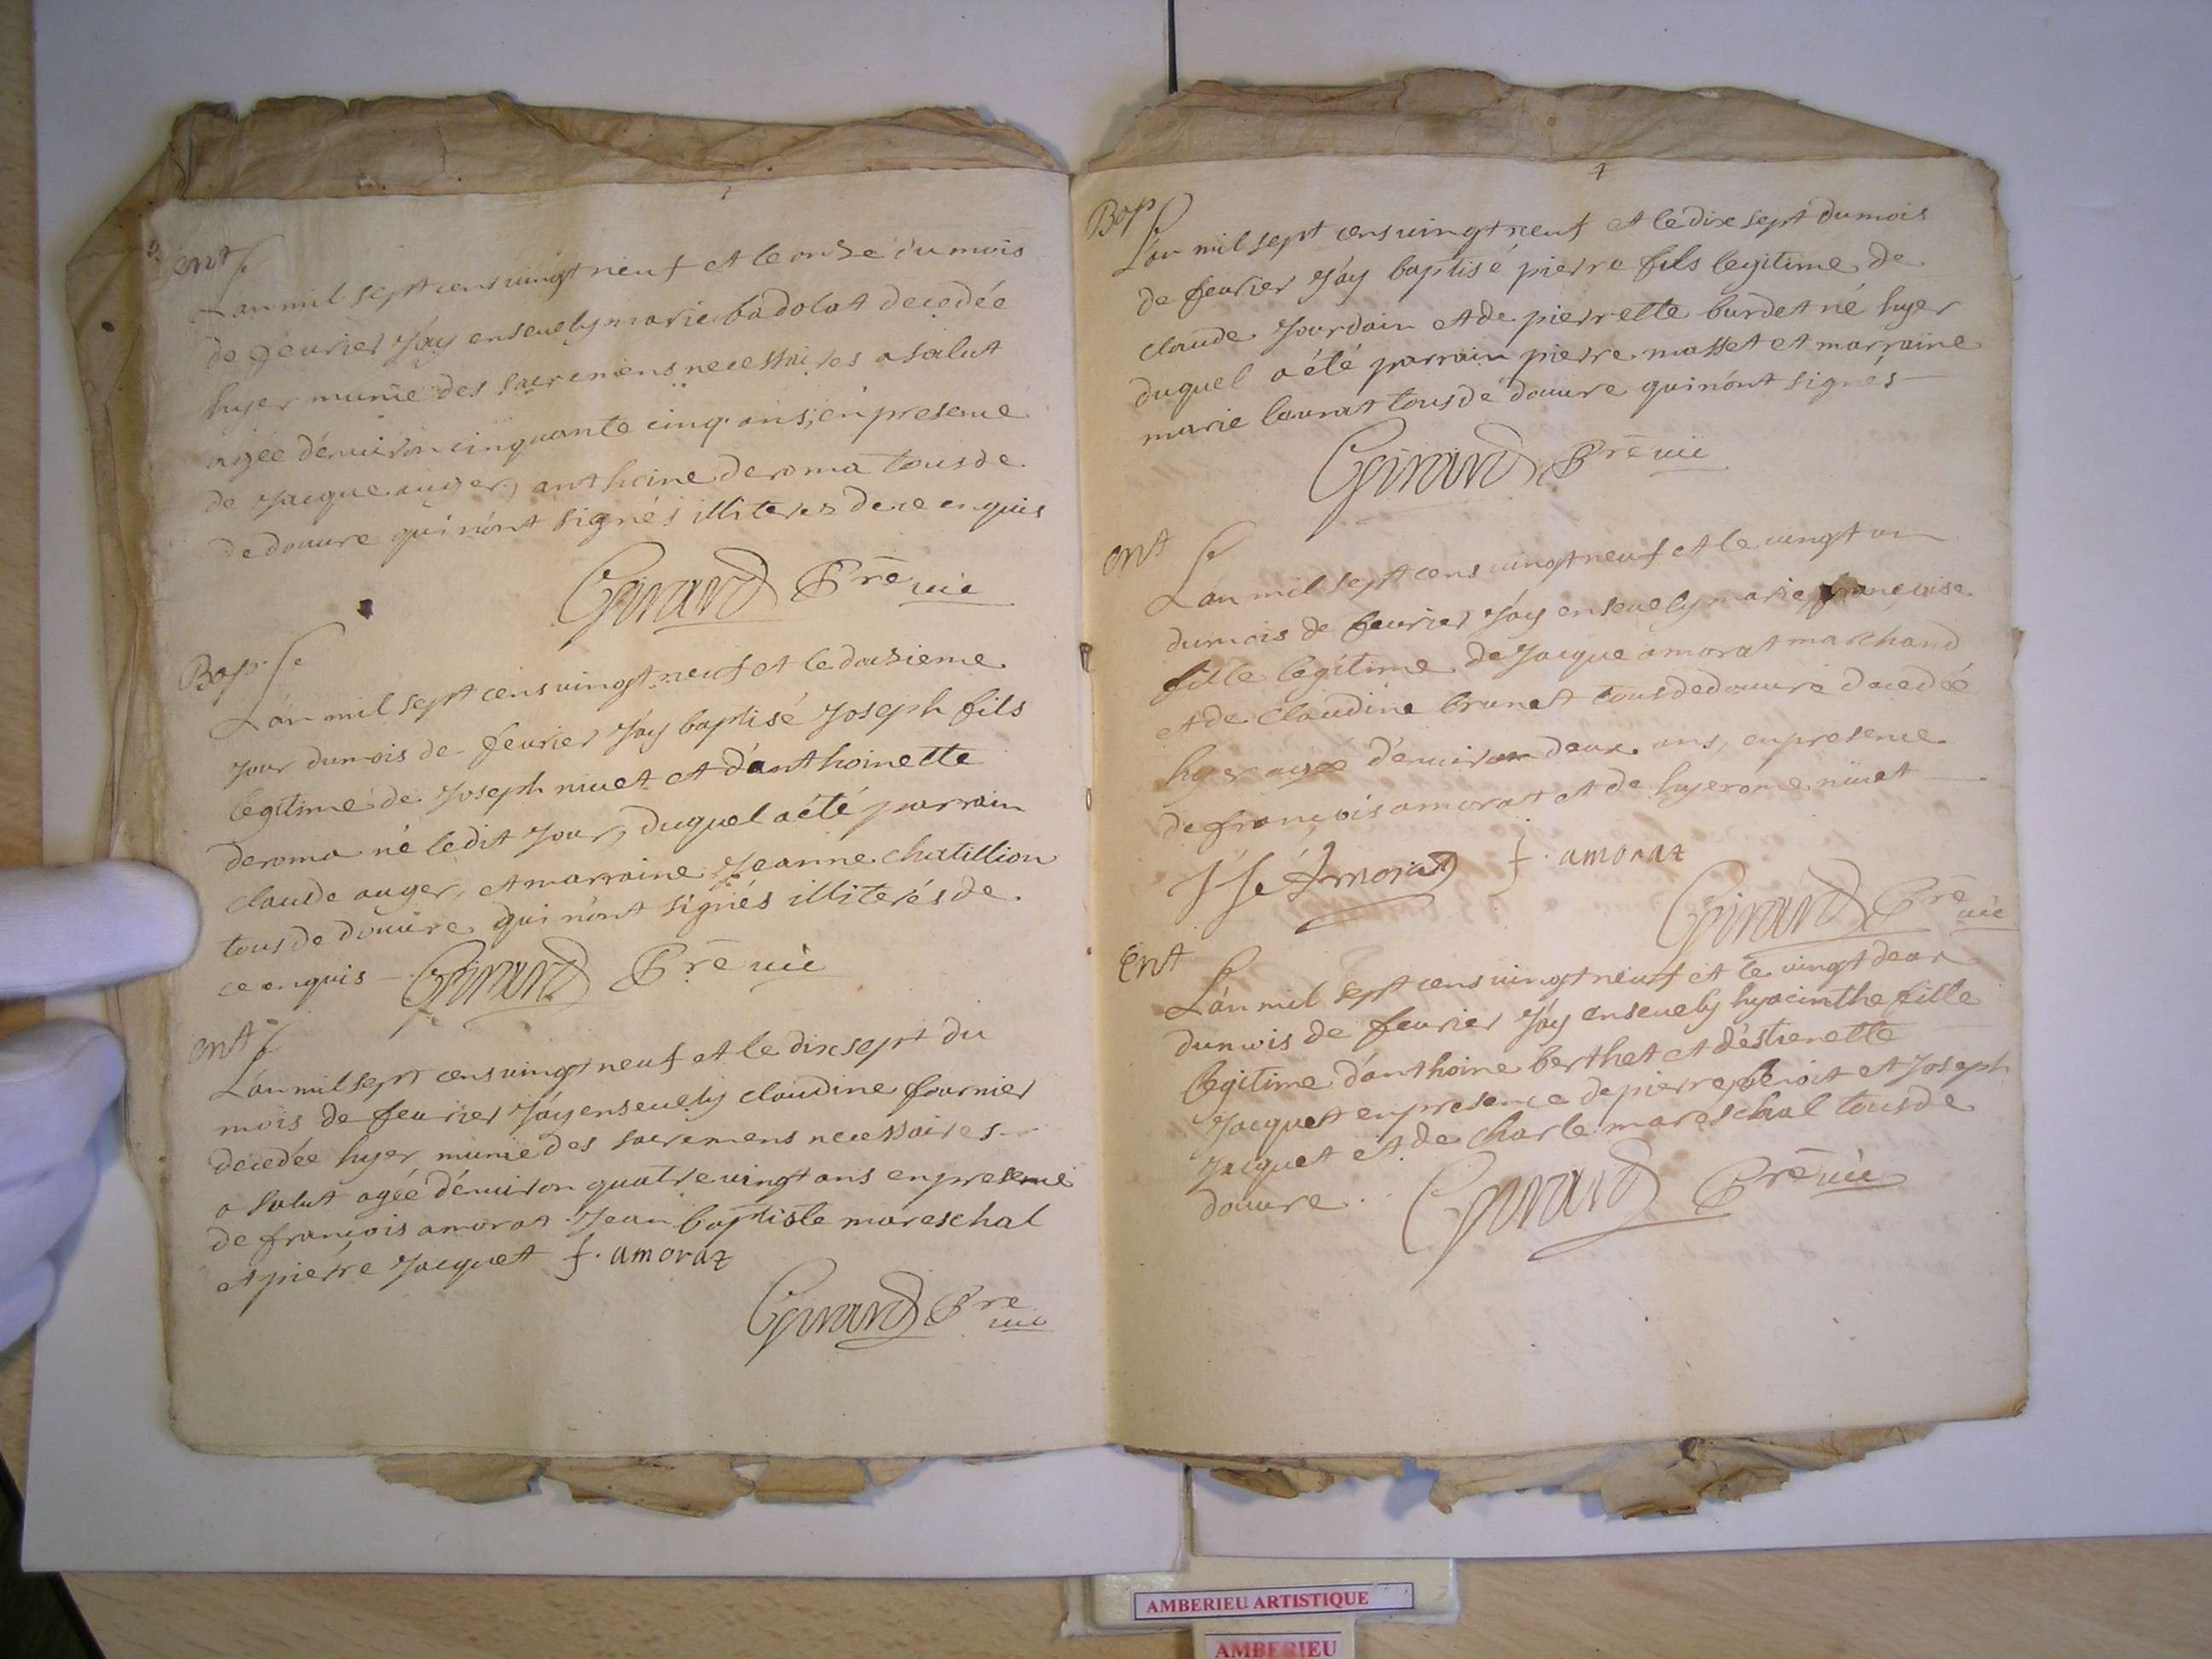 ent
L'an mil sept cens vingt neuf et le onze du mois
de feurier J'ay enseuely marie badolat decedée
hyer munie des sacremens necessaires a salut
agée d'enuiron cinquante cinq ans, en presence
de Jacque auger, anthoine deroma tous de
de douure qui n'ont signés illiterez de ce enquis
Girard Prē vic
Bap.
L'an mil sept cens vingt neuf et le douzieme
jour du mois de feurier J'ay baptisé Joseph fils
legitime de Joseph niuet et d'anthoinette
deroma né ledit Jour, duquel a été parrain
claude auger, et marraine Jeanne chatillion
tous de douure qui n'ont signés illiterés de
ce enquis Girard Prē vic
ent
L'an mil sept cens vingt neuf et le dix sept du
mois de feurier J'ay enseuely claudine fournier
decedée hyer munie des sacremens necessaires
a salut agée d'enuiron quatre vingt ans en presence
de françois amorat Jean baptiste mareschal
et pierre Jacquet f. amoraz
Girard Pre
vic
7
Bap
L'an mil sept cens vingt neuf et le dix sept du mois
de feurier J'ay baptisé pierre fils legitime de
claude Jourdain et de pierrette burdet né hyer
duquel a été parrain pierre masset et marraine
marie laurat tous de douure qui n'ont signés
Girard Prē vic
ent
L'an mil sept cens vingt neuf et le vingt un
du mois de feurier J'ay enseuely marie françoise
fille legitime de Jacque amorat marchand
et de claudine brunet tous de douure decedée
hyer agée d'enuiron deux ans, en presence
de françois amorat et de hyerome niuet
Amorat f. amoraz
Girard Prē
vic
Ent
L'an mil sept cens vingt neuf et le vingt deux
du mois de feurier J'ay enseuely hyacinthe fille
legitime d'anthoine berthet et d'éstienette
Jacquet en presence de pierre benoit et Joseph
Jacquet et de charle mareschal tous de
douure. Girard Prē vic
AMBERIEU ARTISTIQUE
AMBERIEU